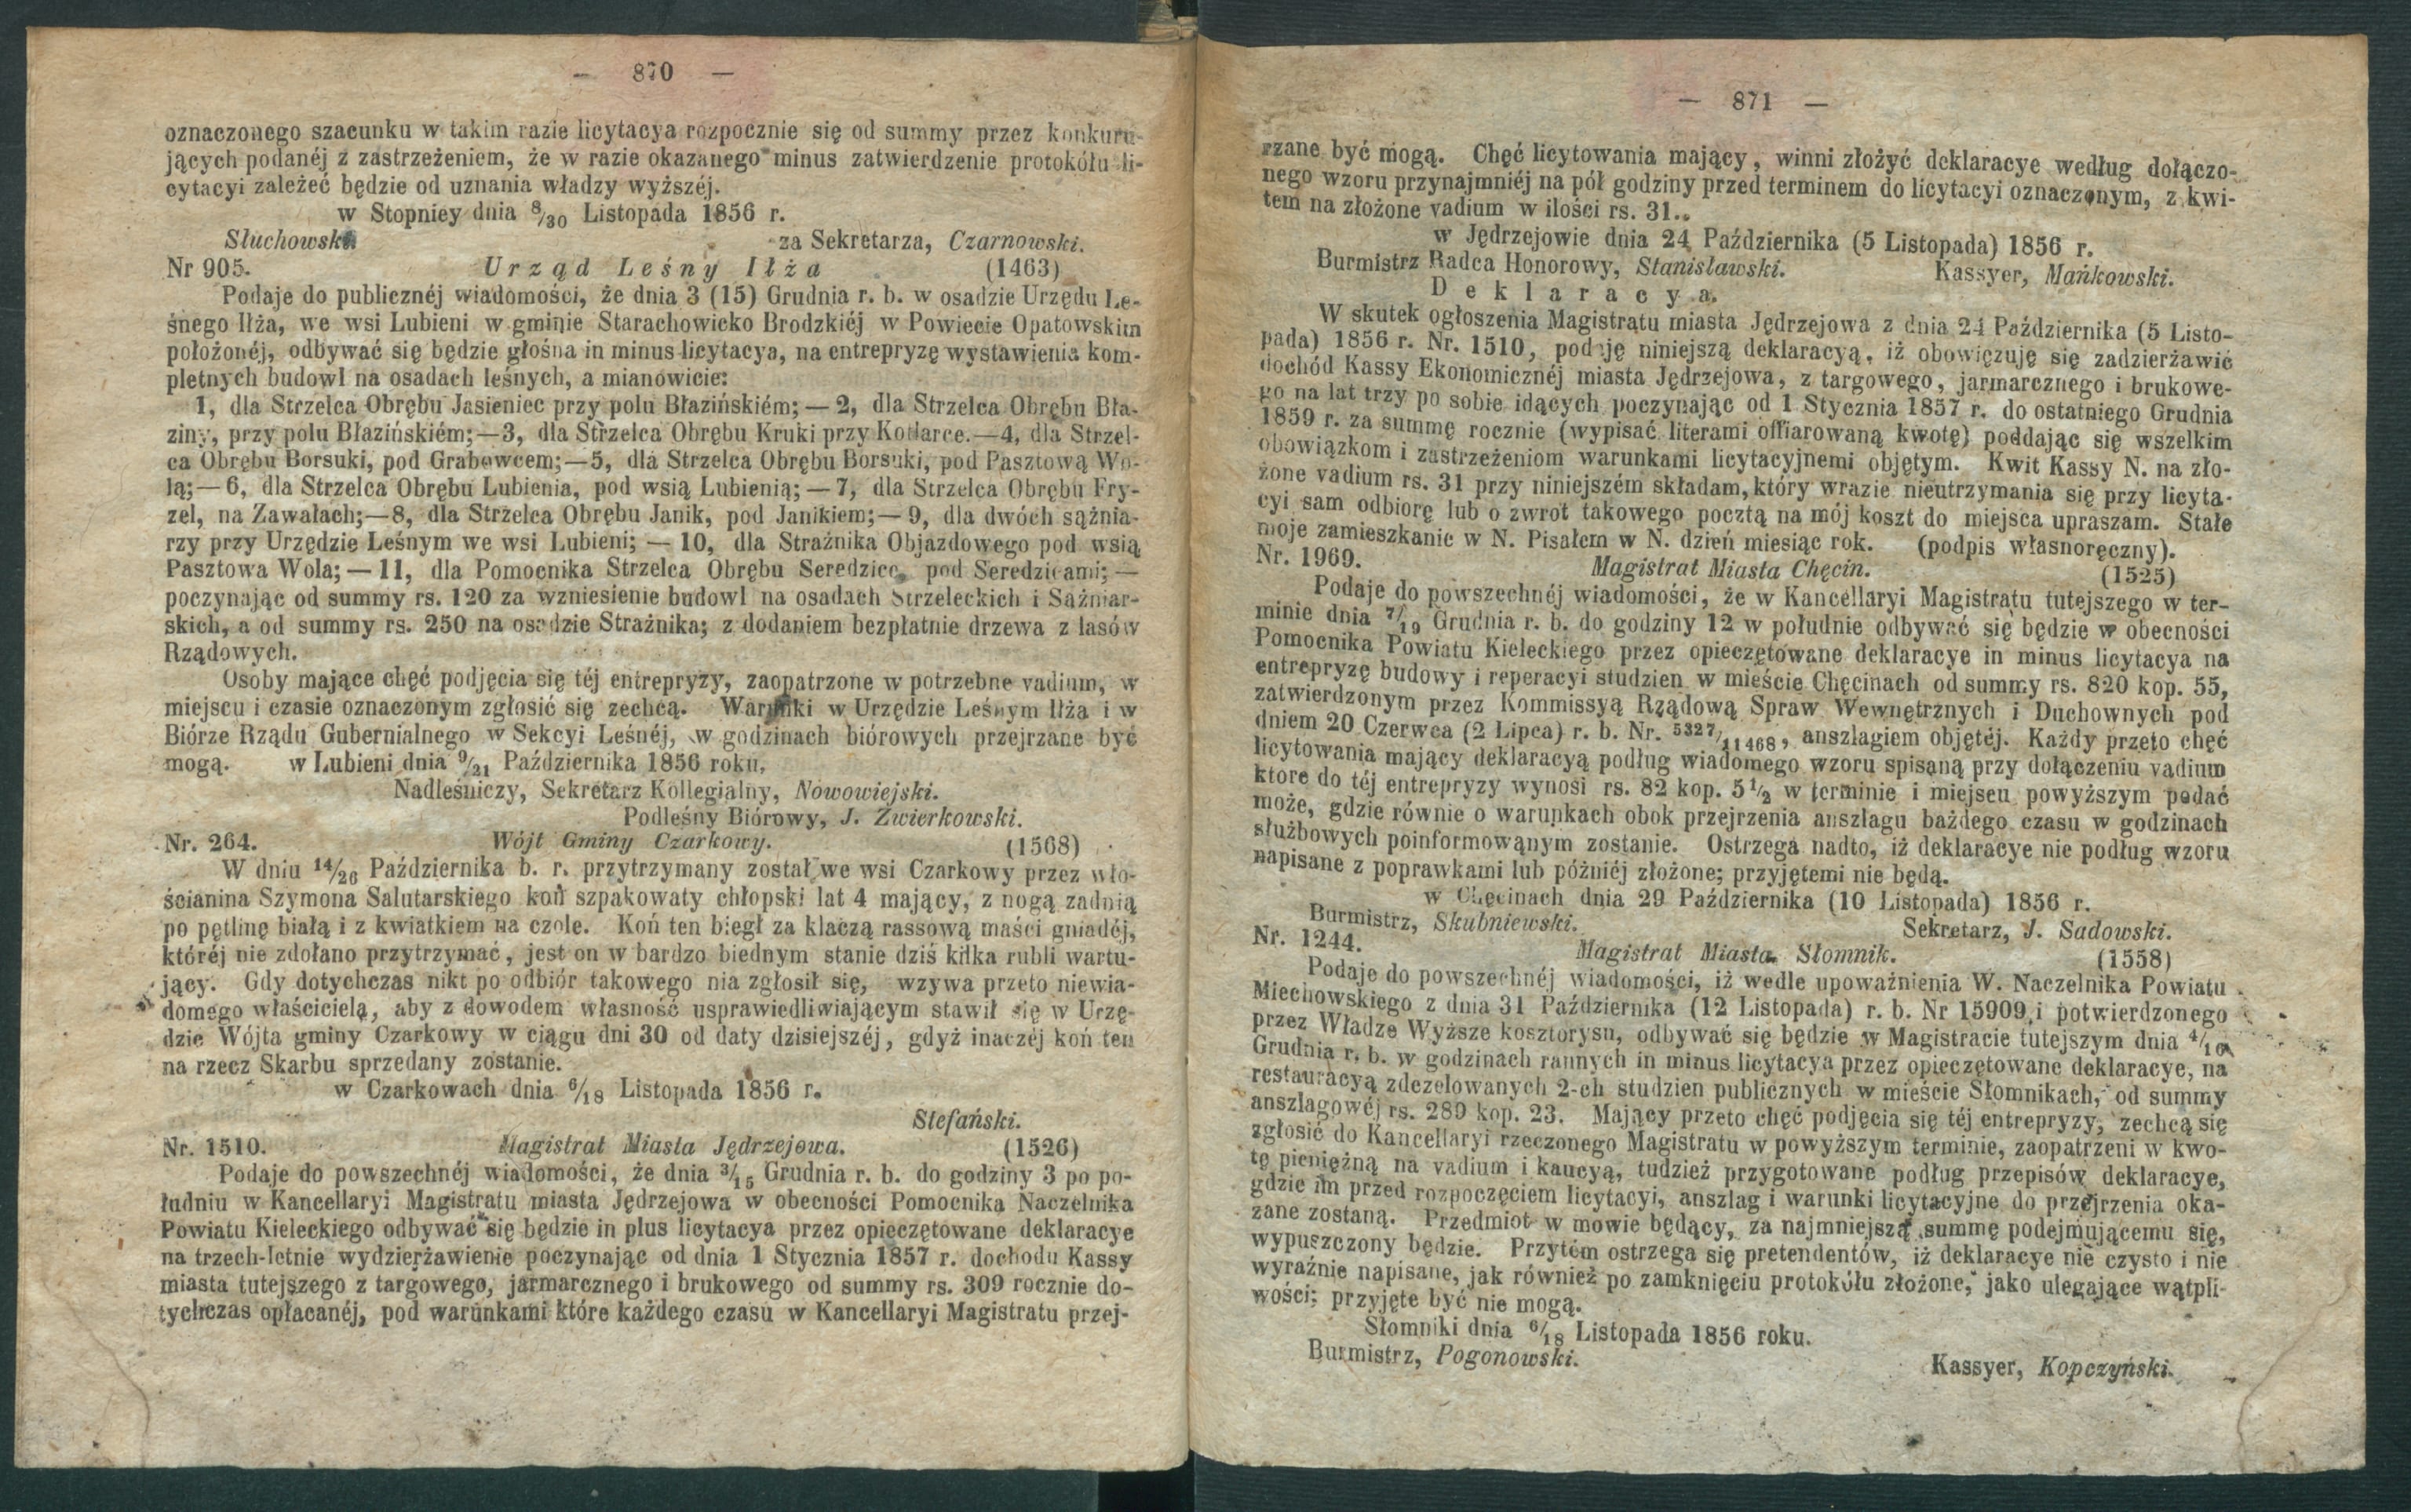 — 870 —
oznaczonego szacunku w takim razie licytacya rozpocznie się od summy przez konkuru-
jących podanéj z zastrzeżeniem, że w razie okazanego minus zatwierdzenie protokółu li-
cytacyi zależeć będzie od uznania władzy wyższéj.
w Stopniey dnia 8/30 Listopada 1856 r.
Słuchowski. za Sekretarza, Czarnowski.
Nr 905. Urząd Leśny Iłża (1463)
Podaje do publicznéj wiadomości, że dnia 3 (15) Grudnia r. b. w osadzie Urzędu Le-
śnego Iłża, we wsi Lubieni w gminie Starachowicko Brodzkiéj w Powiecie Opatowskim
położonéj, odbywać się będzie głośna in minus licytacya, na entrepryzę wystawienia kom-
pletnych budowl na osadach leśnych, a mianowicie:
1, dla Strzelca Obrębu Jasieniec przy polu Błazińskiém; — 2, dla Strzelca Obrębu Bła-
ziny, przy polu Błazińskiém;—3, dla Strzelca Obrębu Kruki przy Kotlarce.—4, dla Strzel-
ca Obrębu Borsuki, pod Grabowcem;—5, dla Strzelca Obrębu Borsuki, pod Pasztową Wo-
lą;—6, dla Strzelca Obrębu Lubienia, pod wsią Lubienią; — 7, dla Strzelca Obrębu Fry-
zel, na Zawałach;—8, dla Strzelca Obrębu Janik, pod Janikiem;— 9, dla dwóch sążnia-
rzy przy Urzędzie Leśnym we wsi Lubieni; — 10, dla Strażnika Objazdowego pod wsią
Pasztowa Wola; — 11, dla Pomocnika Strzelca Obrębu Seredzice, pod Seredzicami; —
poczynając od summy rs. 120 za wzniesienie budowl na osadach Strzeleckich i Sążniar-
skich, a od summy rs. 250 na osadzie Strażnika; z dodaniem bezpłatnie drzewa z lasów
Rządowych.
Osoby mające chęć podjęcia się téj entrepryzy, zaopatrzone w potrzebne vadium, w
miejscu i czasie oznaczonym zgłosić się zechcą. Warunki w Urzędzie Leśnym Iłża i w
Biórze Rządu Gubernialnego w Sekcyi Leśnéj, w godzinach biórowych przejrzane być
mogą. w Lubieni dnia 9/21 Października 1856 roku,
Nadleśniczy, Sekretarz Kollegialny, Nowowiejski.
Podleśny Biórowy, J. Zwierkowski.
Nr. 264. Wójt Gminy Czarkowy. (1568)
W dniu 14/26 Października b. r. przytrzymany został we wsi Czarkowy przez wło-
ścianina Szymona Salutarskiego koń szpakowaty chłopski lat 4 mający, z nogą zadnią
po pętlinę białą i z kwiatkiem na czole. Koń ten biegł za klaczą rassową maści gniadéj,
któréj nie zdołano przytrzymać, jest on w bardzo biednym stanie dziś kilka rubli wartu-
jący. Gdy dotychczas nikt po odbiór takowego nia zgłosił się, wzywa przeto niewia-
domego właścicielą, aby z dowodem własność usprawiedliwiającym stawił się w Urzę-
dzie Wójta gminy Czarkowy w ciągu dni 30 od daty dzisiejszéj, gdyż inaczéj koń ten
na rzecz Skarbu sprzedany zostanie.
w Czarkowach dnia 6/18 Listopada 1856 r.
Stefański.
Nr. 1510. Magistrat Miasta Jędrzejowa. (1526)
Podaje do powszechnéj wiadomości, że dnia 3/15 Grudnia r. b. do godziny 3 po po-
łudniu w Kancellaryi Magistratu miasta Jędrzejowa w obecności Pomocnika Naczelnika
Powiatu Kieleckiego odbywać się będzie in plus licytacya przez opieczętowane deklaracye
na trzech-letnie wydzierżawienie poczynając od dnia 1 Stycznia 1857 r. dochodu Kassy
miasta tutejszego z targowego, jarmarcznego i brukowego od summy rs. 309 rocznie do-
tychczas opłacanéj, pod warunkami które każdego czasu w Kancellaryi Magistratu przej-
— 871 —
rzane być mogą. Chęć licytowania mający, winni złożyć deklaracye według dołączo-
nego wzoru przynajmniéj na pół godziny przed terminem do licytacyi oznaczonym, z kwi-
tem na złożone vadium w ilości rs. 31..
w Jędrzejowie dnia 24 Października (5 Listopada) 1856 r.
Burmistrz Radca Honorowy, Stanisławski. Kassyer, Mańkowski.
Deklaracya.
W skutek ogłoszenia Magistratu miasta Jędrzejowa z dnia 24 Października (5 Listo-
pada) 1856 r. Nr. 1510, podaję niniejszą deklaracyą, iż obowięzuję się zadzierżawić
dochód Kassy Ekonomicznéj miasta Jędrzejowa, z targowego, jarmarcznego i brukowe-
go na lat trzy po sobie idących poczynając od 1 Stycznia 1857 r. do ostatniego Grudnia
1859 r. za summę rocznie (wypisać literami offiarowaną kwotę) poddając się wszelkim
obowiązkom i zastrzeżeniom warunkami licytacyjnemi objętym. Kwit Kassy N. na zło-
żone vadium rs. 31 przy niniejszém składam, który wrazie nieutrzymania się przy licyta-
cyi sam odbiorę lub o zwrot takowego pocztą na mój koszt do miejsca upraszam. Stałe
moje zamieszkanie w N. Pisałem w N. dzień miesiąc rok. (podpis własnoręczny).
Nr. 1969. Magistrat Miasta Chęcin. (1525)
Podaje do powszechnéj wiadomości, że w Kancellaryi Magistratu tutejszego w ter-
minie dnia 7/19 Grudnia r. b. do godziny 12 w południe odbywać się będzie w obecności
Pomocnika Powiatu Kieleckiego przez opieczętowane deklaracye in minus licytacya na
entrepryzę budowy i reperacyi studzien w mieście Chęcinach od summy rs. 820 kop. 55,
zatwierdzonym przez Kommissyą Rządową Spraw Wewnętrznych i Duchownych pod
dniem 20 Czerwca (2 Lipca) r. b. Nr. 5327/11468, anszlagiem objętéj. Każdy przeto chęć
licytowania mający deklaracyą podług wiadomego wzoru spisaną przy dołączeniu vadium
ktore do téj entrepryzy wynosi rs. 82 kop. 5½ w terminie i miejscu powyższym podać
może, gdzie równie o warunkach obok przejrzenia anszlagu bażdego czasu w godzinach
służbowych poinformowąnym zostanie. Ostrzega nadto, iż deklaracye nie podług wzoru
napisane z poprawkami lub późniéj złożone; przyjętemi nie będą.
w Chęcinach dnia 29 Października (10 Listopada) 1856 r.
Burmistrz, Skubniewski. Sekretarz, J. Sadowski.
Nr. 1244. Magistrat Miasta Słomnik. (1558)
Podaje do powszechnéj wiadomości, iż wedle upoważnienia W. Naczelnika Powiatu
Miechowskiego z dnia 31 Października (12 Listopada) r. b. Nr 15909 i potwierdzonego
przez Władze Wyższe kosztorysu, odbywać się będzie w Magistracie tutejszym dnia 4/16
Grudnia r. b. w godzinach rannych in minus licytacya przez opieczętowane deklaracye, na
restauracyą zdezelowanych 2-ch studzien publicznych w mieście Słomnikach, od summy
anszlagowéj rs. 289 kop. 23. Mający przeto chęć podjęcia się téj entrepryzy, zechcą się
zgłosić do Kancellaryi rzeczonego Magistratu w powyższym terminie, zaopatrzeni w kwo-
tę pieniężną na vadium i kaucyą, tudzież przygotowane podług przepisów deklaracye,
gdzie im przed rozpoczęciem licytacyi, anszlag i warunki licytacyjne do przejrzenia oka-
zane zostaną. Przedmiot w mowie będący, za najmniejszą summę podejmującemu się,
wypuszczony będzie. Przytém ostrzega się pretendentów, iż deklaracye nie czysto i nie
wyraźnie napisane, jak również po zamknięciu protokółu złożone, jako ulegające wątpli-
wości; przyjęte być nie mogą.
Słomniki dnia 6/18 Listopada 1856 roku.
Burmistrz, Pogonowski.
Kassyer, Kopczyński.